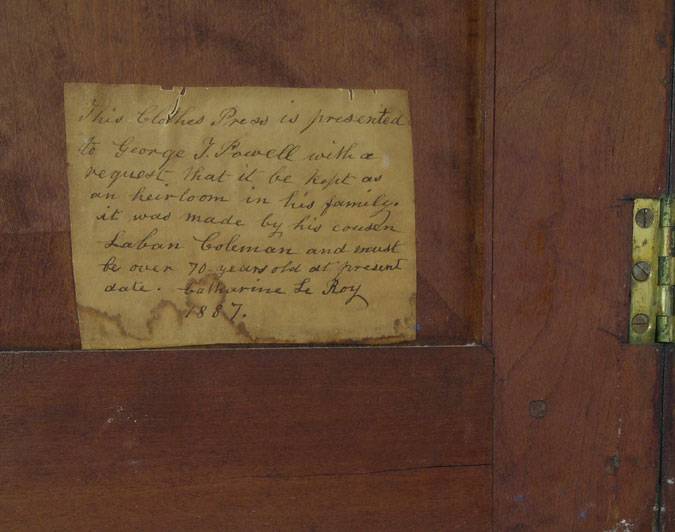 This Clothes Press is presented
to George T. Powell with a
request that it be kept as
an heirloom in his family.
it was made by his cousen
Laban Coleman and must
be over 70 years old at present
date. Catharine Le Roy
1887.